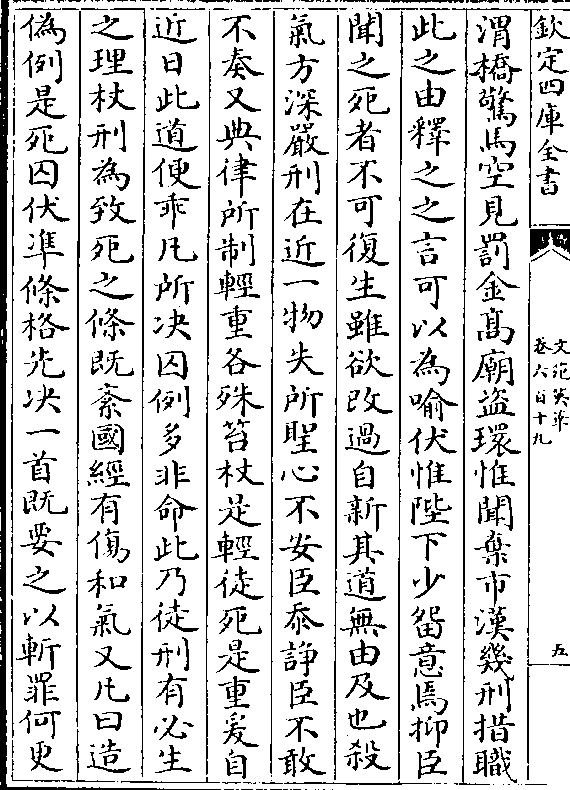 欽定四庫全書
文苑英華
卷六百十九
五
渭橋驚馬空見罰金髙廟盜環惟聞棄市漢幾刑措職
此之由釋之之言可以為喻伏惟陛下少留意焉抑臣
聞之死者不可復生雖欲改過自新其道無由及也殺
氣方深嚴刑在近一物失所聖心不安臣忝諍臣不敢
不奏又典律所制輕重各殊笞杖是輕徒死是重爰自
近日此道便乖凡所决囚例多非命此乃徒刑有必生
之理杖刑為致死之條既紊國經有傷和氣又凡曰造
偽例是死囚伏準條格先决一首既要之以斬罪何更